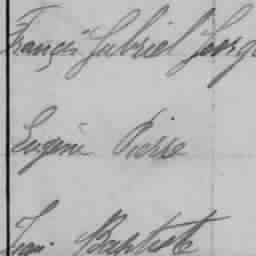 François Gabriel Georg
Eugène Pierre
Jean Baptiste